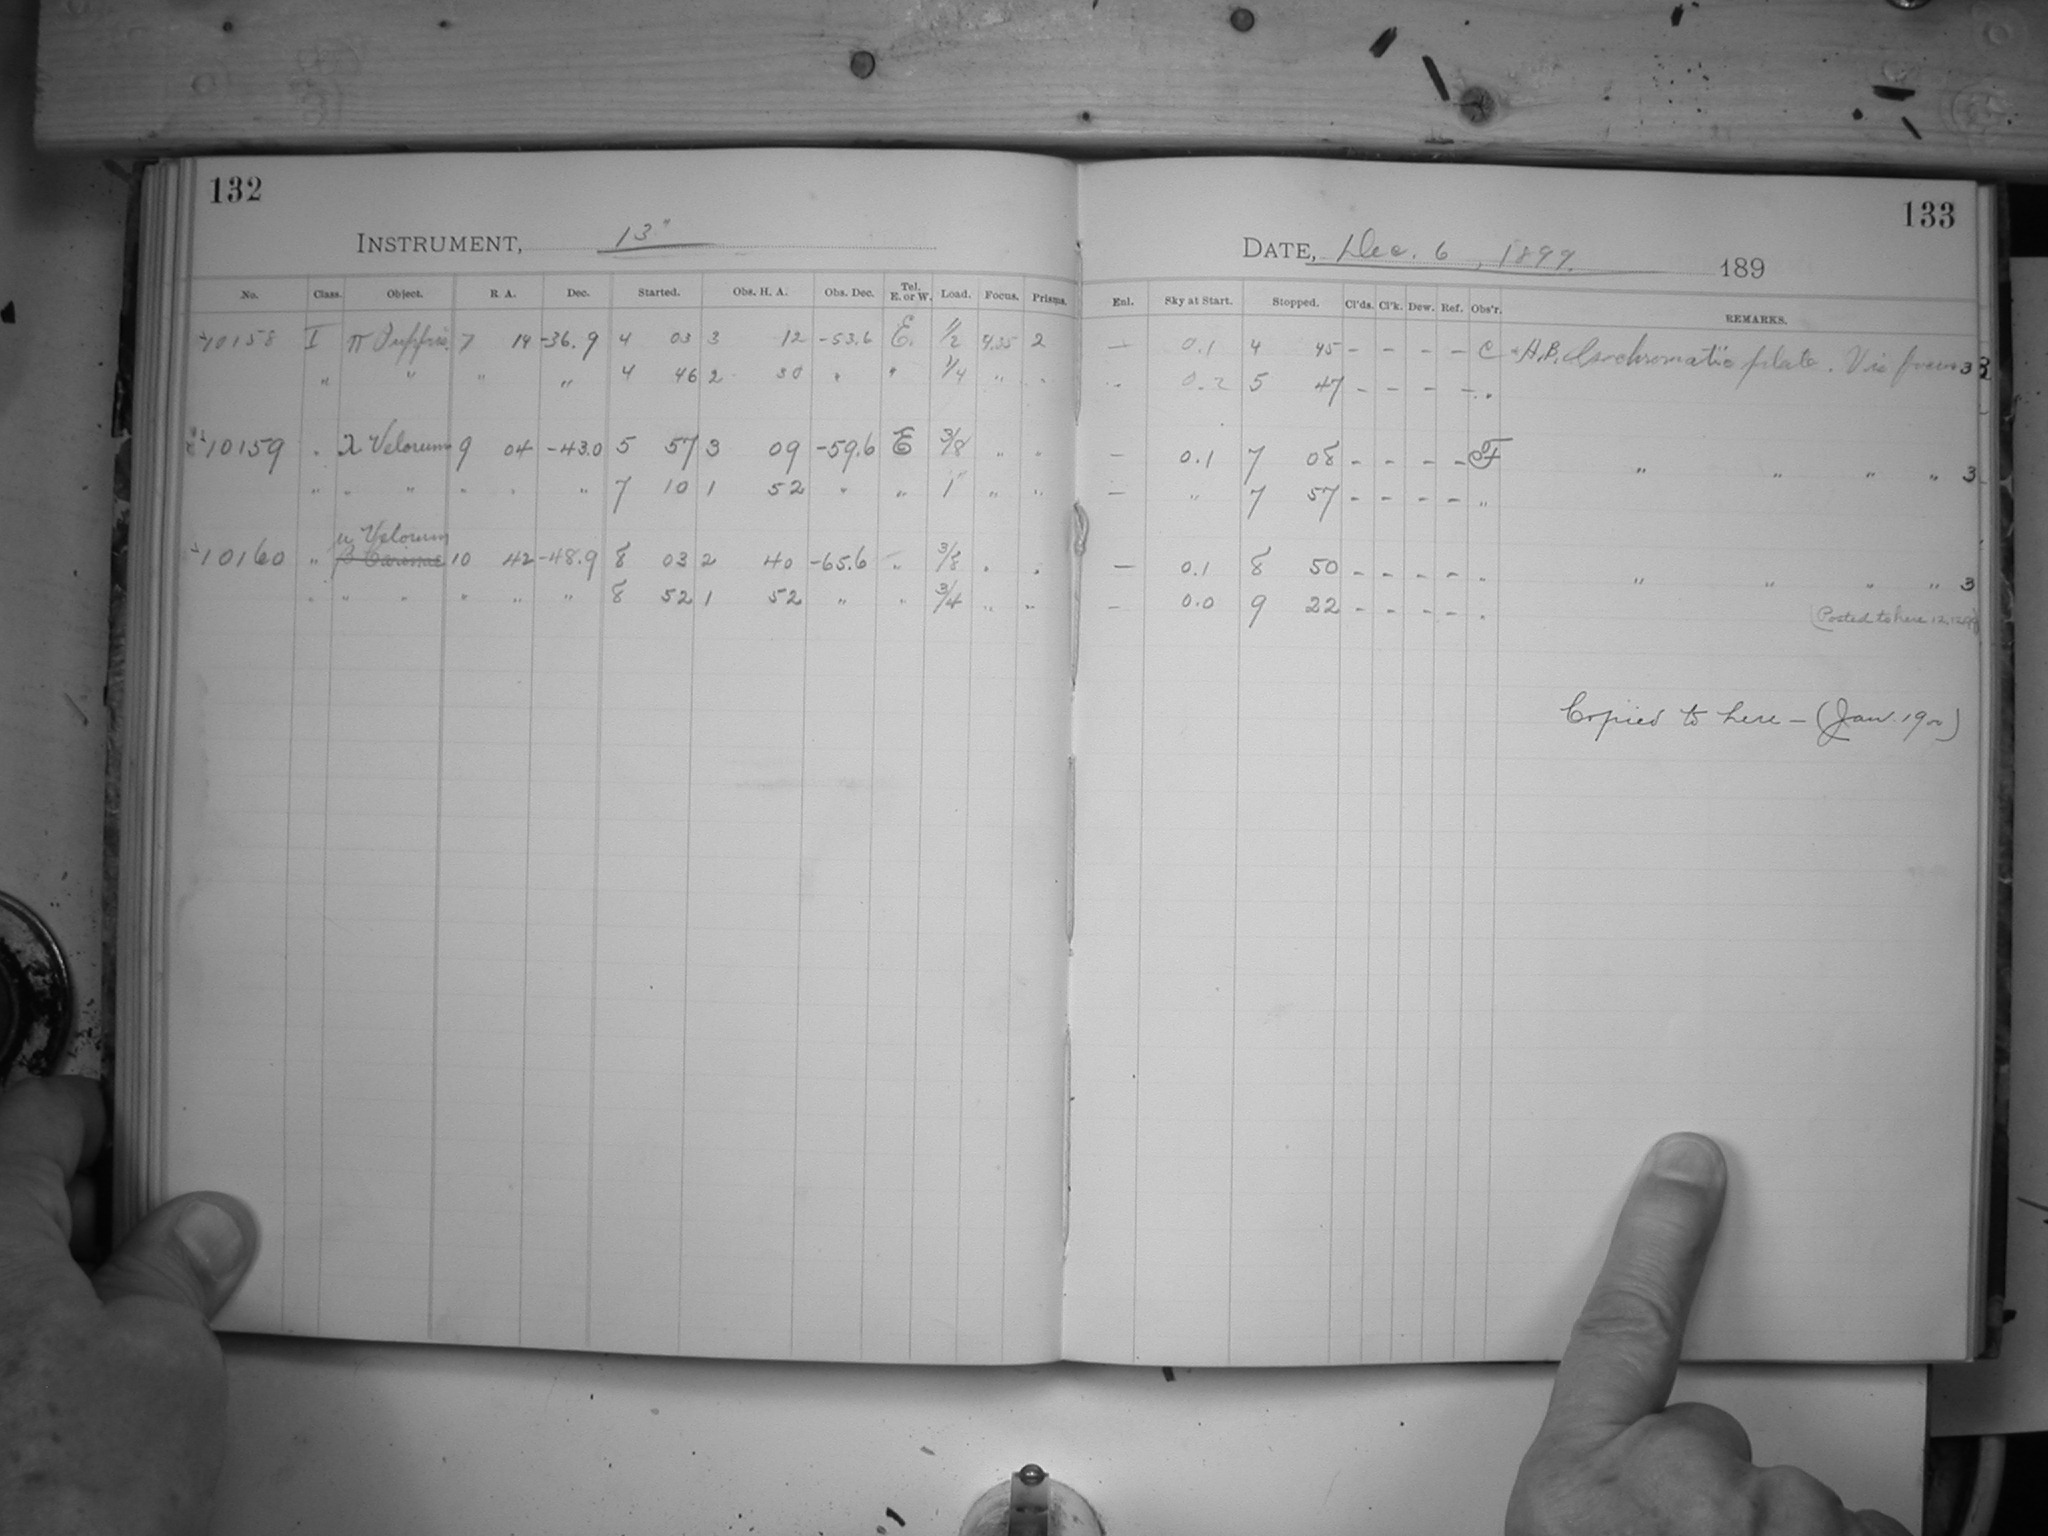 132
INSTRUMENT, 13"
No. Class. Object. R. A. Dec. Started. Obs. H. A. Obs. Dec. Tel. E. or W. Load. Focus. Prisms.
10158 I π Puppis 7 14 -36.9 4 03 3 12 -53.6 E. 1/2 2
" " " " 4 46 2 30 " " 1/4 " "
10159 " λ Velorum 9 04 -43.0 5 57 3 09 -59.6 E 3/8 " "
" " " " " " 7 10 1 52 " " 1 " "
μ Velorum
10160 " β Carinae 10 42 -48.9 8 03 2 40 -65.6 " 3/8 " "
" " " " " " 8 52 1 52 " " 3/4 " "
133
DATE, Dec. 6, 1899. 189
Enl. Sky at Start. Stopped. Cl'ds. Cl'k. Dew. Ref. Obs'r. REMARKS.
— 0.1 4 45 - - - - C A.B. Isochromatic plate. Vis focus 3
" 0.2 5 47 - - - - "
— 0.1 7 08 - - - - F " " " " 3
— " 7 57 - - - - "
— 0.1 8 50 - - - - " " " " " 3
- 0.0 9 22 - - - - "
(Posted to here 12,12,99)
Copied to here — (Jan. 1900)